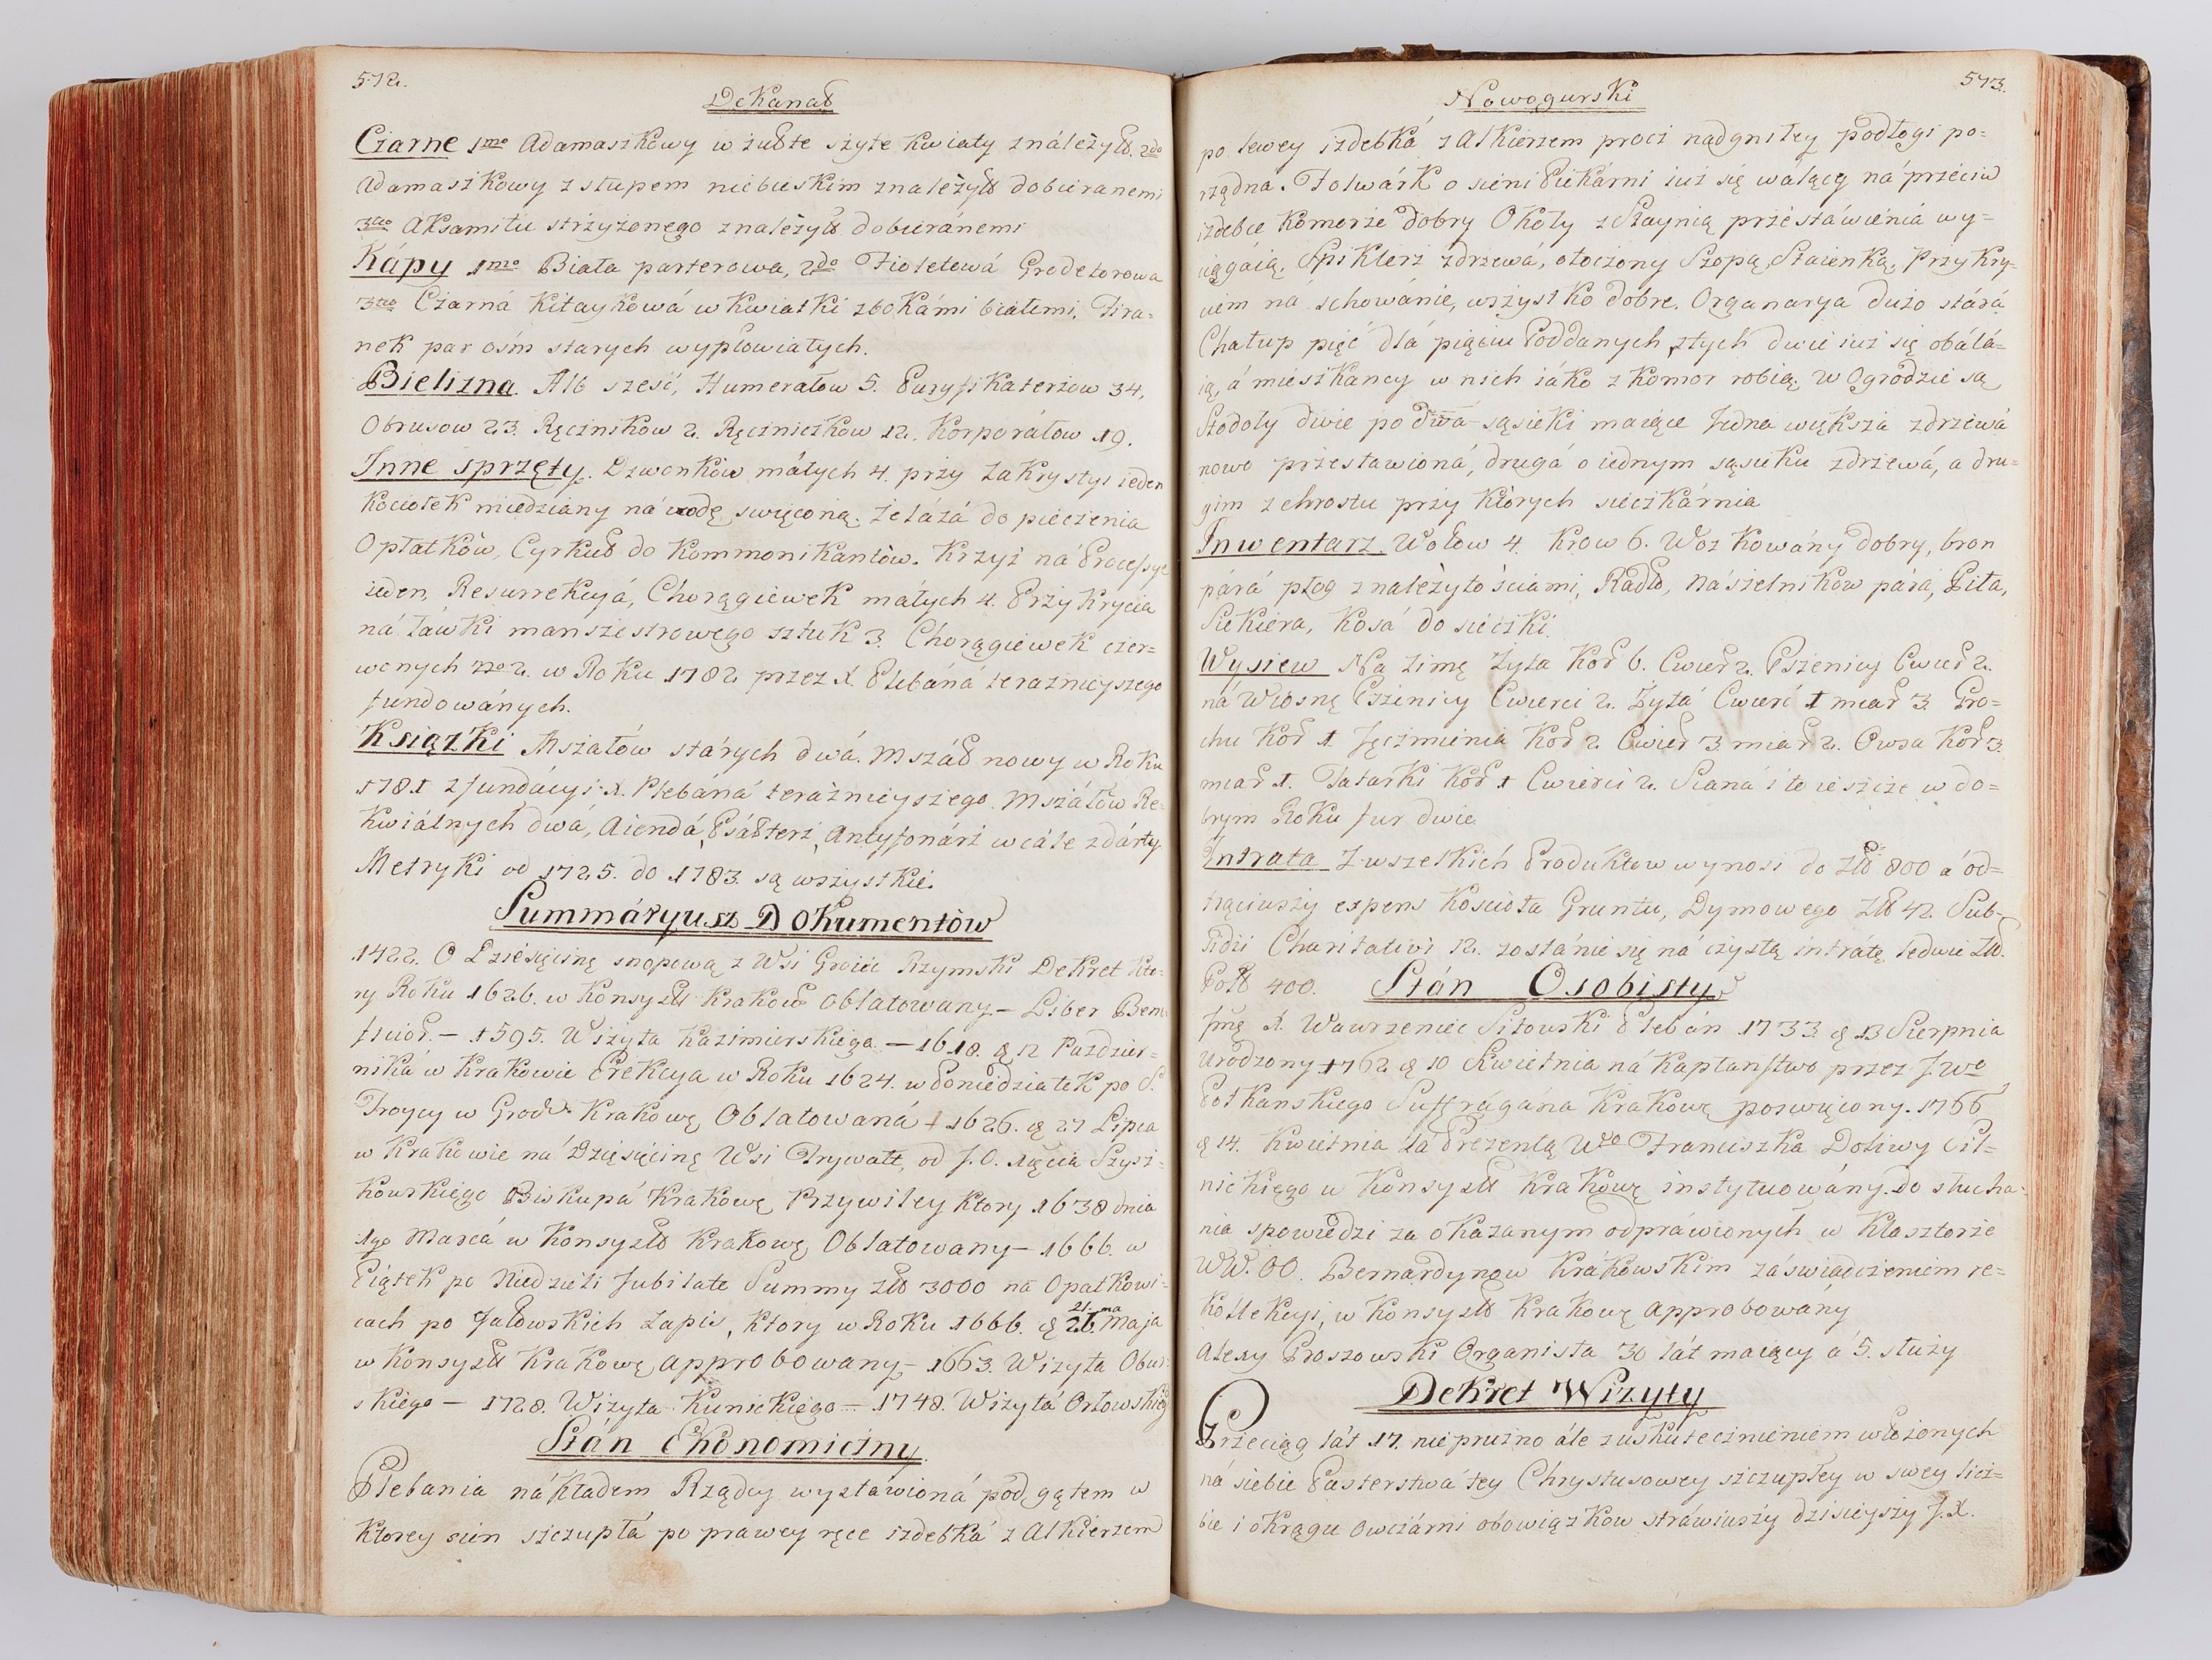 572.
Dekanał
Czarne 1mo Adamaszkowy w żułte szyte kwiaty z náleżył. 2do
Adamaszkowy z słupem niebieskim z należył dobieranemi
3tio Aksamitu strzyżonego z należył dobieránemi
Kápy 1mo Biała parterowa, 2do Fioletowá Grodetorowa
3tio Czarná Kitaykowá w kwiatki z bokámi białemi. Fira=
nek par ośm starych wypłowiałych.
Bielizna. Alb sześć, Humerałow 5. Puryfikaterzow 34,
Obrusow 23. Ręcznikow 2. Ręczniczkow 12. Korporáłow 19.
Inne sprzęty. Dzwonków máłych 4. przy Zakrystyi ieden
Kociołek miedziany ná wodę swięconą. Żelázá do pieczenia
Opłatków, Cyrkuł do Kommonikantów. Krzyż ná Processye
ieden, Resurrekcyá, Chorągiewek máłych 4. Przykrycia
ná ławki manszestrowego sztuk 3. Chorągiewek czer=
wonych no 2. w Roku 1782 przez X. Plebáná teraznieyszego
fundowánych.
Ksiązki Mszałów stárych dwá. Mszáł nowy w Roku
1781 z fundácyi X. Plebáná teráznieyszego. Mszáłów Re=
kwiálnych dwá, Aiendá, Psáłterz, Antyfonárz w cále zdárty
Metryki od 1725. do 1783. są wszystkie.
Summáryusz Dokumentów
1422. O Dziesięcinę snopową z Wsi Rzymski Dekret kto=
ry Roku 1626. w Konsyst Krakow Oblatowany – Liber Bene
ficior. – 1595. Wizyta Kazimierskiego – 1618. d 12 Pazdzier=
niká w Krakowie Erekcya w Roku 1624. w Poniedziałek po S.
Troycy w Grod Krakowę Oblatowaná – 1626. d 27 Lipca
w Krakowie ná Dzięsięcinę Wsi od J.O. Xięcia Szysz=
kowskiego Biskupá Krakowę Przywiley ktory 1638 dnia
1go Marcá w Konsyst Krakowę Oblatowany – 1666. w
Piątek po Niedzieli Jubilate Summy zł 3000 na Opatkowi=
cach po Jałowskich Zapis, ktory w Roku 1666. d 26. 21.ma Maja
w Konsyst Krakowę approbowany – 1663. Wizyta
skiego – 1728. Wizyta Kunickiego – 1748. Wizytá Orłowskieg
Stán Ekonomiczny
Plebania nákładem Rządcy wystáwioná pod gątem w
ktorey sien szczupłá po prawey ręce izdebká z Alkierzem
573.
Nowogurski
po lewey izdebká z Alkierzem procz nadgniłey podłogi po=
rządna. Folwárk o sieni Piekárni iuż się walącey ná przeciw
izdebce komorze dobry Okoły z Staynią przestáwieniá wy=
ciągáią. Spiklerz z drzewá, otoczony Szopą, Staienką, Przykry=
ciem ná schowánie, wszystko dobre. Organarya dużo stárá
Chałup pięć dlá pięciu Poddanych, z tych dwie iuż się obálá=
ią, á mieszkancy w nich iáko z komor robią. W Ogrodzie są
Stodoły dwie po dwa sąsieki maiące Jedna większa z drzewá
nowo przestawioná, drugá o iednym sąsieku z drzewá, a dru=
gim z chrostu przy ktorych sieczkárnia
Inwentarz. Wołow 4. Krow 6. Woz kowány dobry, bron
párá płog z należytościami, Radło, Naszelnikow párá, Piła,
Siekiera, Kosá do sieczki.
Wysiew Na zimę Żyta Kor 6. Cwier 2. Pszenicy Cwier 2.
ná Wiosnę Pszenicy Cwierci 2. Żytá Cwierć 1 miar 3 Gro=
chu Kor 1. Jęczmienia Kor 2 Cwier 3 miar 2. Owsa Kor 3
miar 1. Tatarki Kor 1 Cwierci 2. Siana i to ieszcze w do=
brym Roku fur dwie
Intrata Z wszelkich Produktow wynosi do Zł 800 á od=
trąciwszy expens Kościoła Gruntu, Dymowego Zł 42. Sub=
sidii Charitativi 12. zostánie się ná czystą intrátę ledwie Zł.
Pol 400.
Stán Osobisty
Jmę X. Wawrzeniec Siłowski Plebán 1733 d 13 Sierpnia
urodzony 1762 d 10 Kwietnia ná Kapłanstwo przez J.Wo
Potkanskiego Suffragána Krakowę poswięcony. 1766
d 14. Kwietnia za Prezentą Wo Franciszka Doliwy Pil=
nickiego w Konsyst Krakowę instytuowány. Do słucha=
nia spowiedzi za okazanym odpráwionych w Klasztorze
WW. OO. Bernardynow Krákowskim záswiadczeniem re=
kollekcyi, w Konsyst Krakowę approbowány
Alexy Proszowski Organista 30 lát maiący á 5. służy
Dekret Wizyty
Przeciąg lát 17. nieprużno ále z uskutecznieniem włożonych
ná siebie Pasterstwá tey Chrystusowey szczupłey w swey licz=
bie i okręgu Owczárni obowiązkow stráwiwszy dzisieyszy J.X.